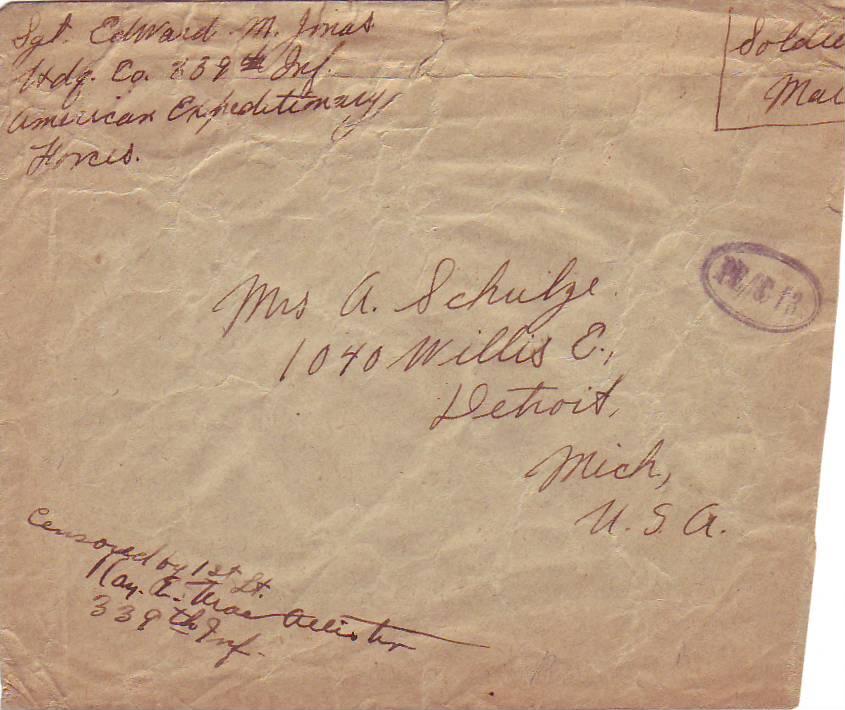 Sgt. Edward M. Jonas
Hdq. Co. 339th Inf.
American Expeditionary
Forces.
Soldie
Mai
Mrs A. Schulze.
1040 Willis E.,
Detroit,
Mich,
U. S. A.
Censored by 1st Lt.
Ray E. MacAllister
339th Inf.